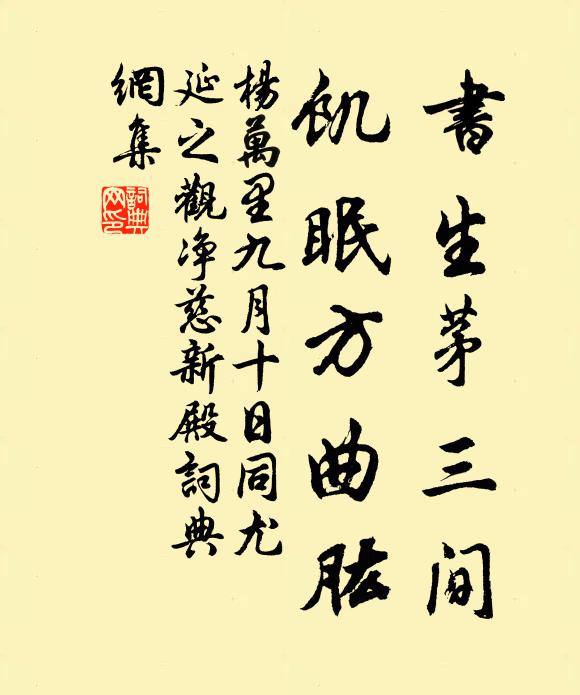 書生茅三间
飢眠方曲肱
楊萬里九月十日同尤
延之觀净慈新殿詞典
網集
詞典網印